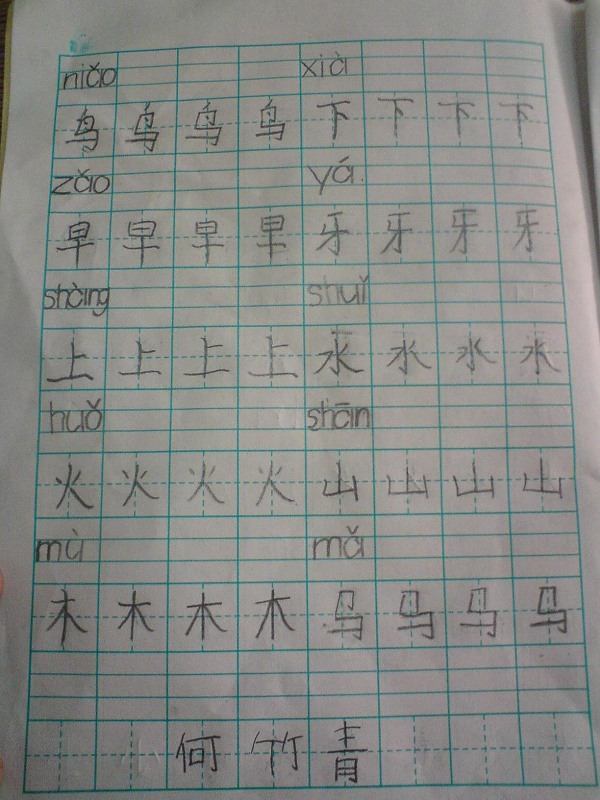 niǎo xià
鸟 鸟 鸟 鸟 下 下 下 下
zǎo yá
早 早 早 早 牙 牙 牙 牙
shàng shuǐ
上 上 上 上 水 水 水 水
huǒ shān
火 火 火 火 山 山 山 山
mù mǎ
木 木 木 木 马 马 马 马
何 竹 青